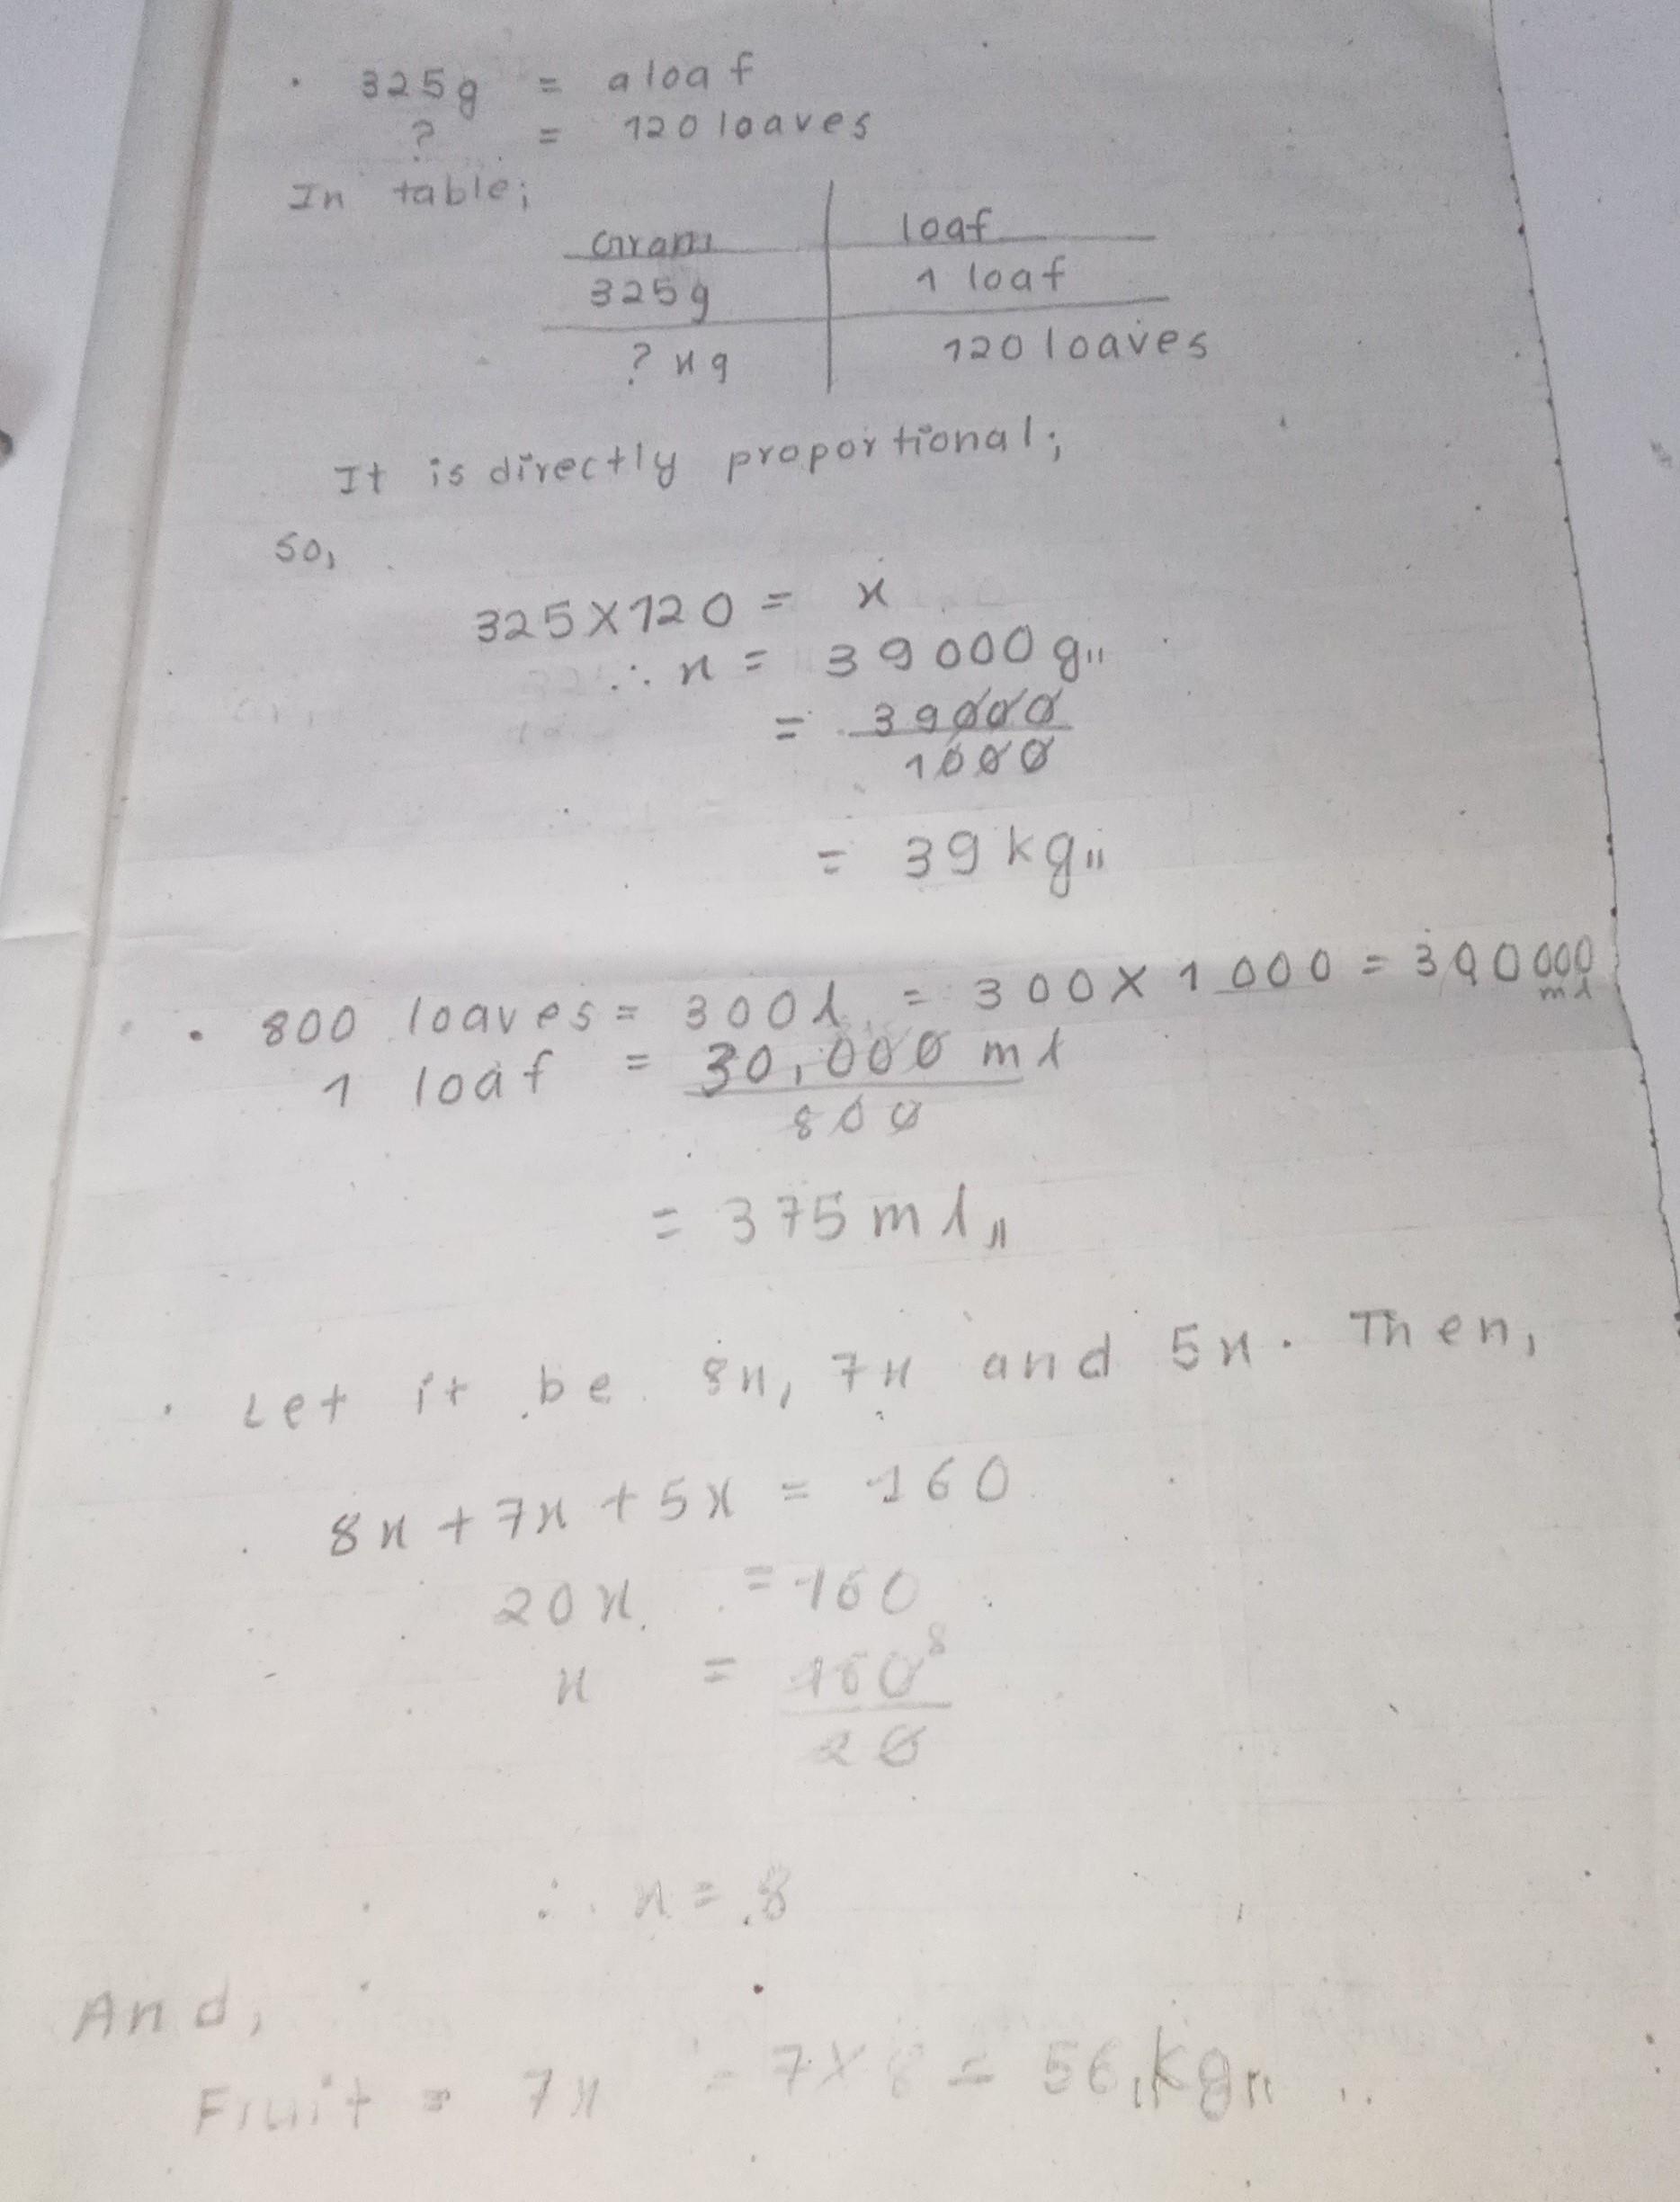 · 325g = a loaf
? = 120 loaves
In table;
Gram loaf
325g 1 loaf
? x g 120 loaves
It is directly proportional;
So,
325 × 120 = x
∴ x = 39000 g,,
= 39000
1000
= 39 kg,,
· 800 loaves = 300 l = 300 × 1000 = 300000 ml
1 loaf = 30,000 ml
800
= 375 ml,,
· Let it be 8x, 7x and 5x. Then,
8x + 7x + 5x = 160
20x = 160
x = 160 8
20
∴ x = 8
And,
Fruit = 7x = 7 × 8 = 56,, kg,,